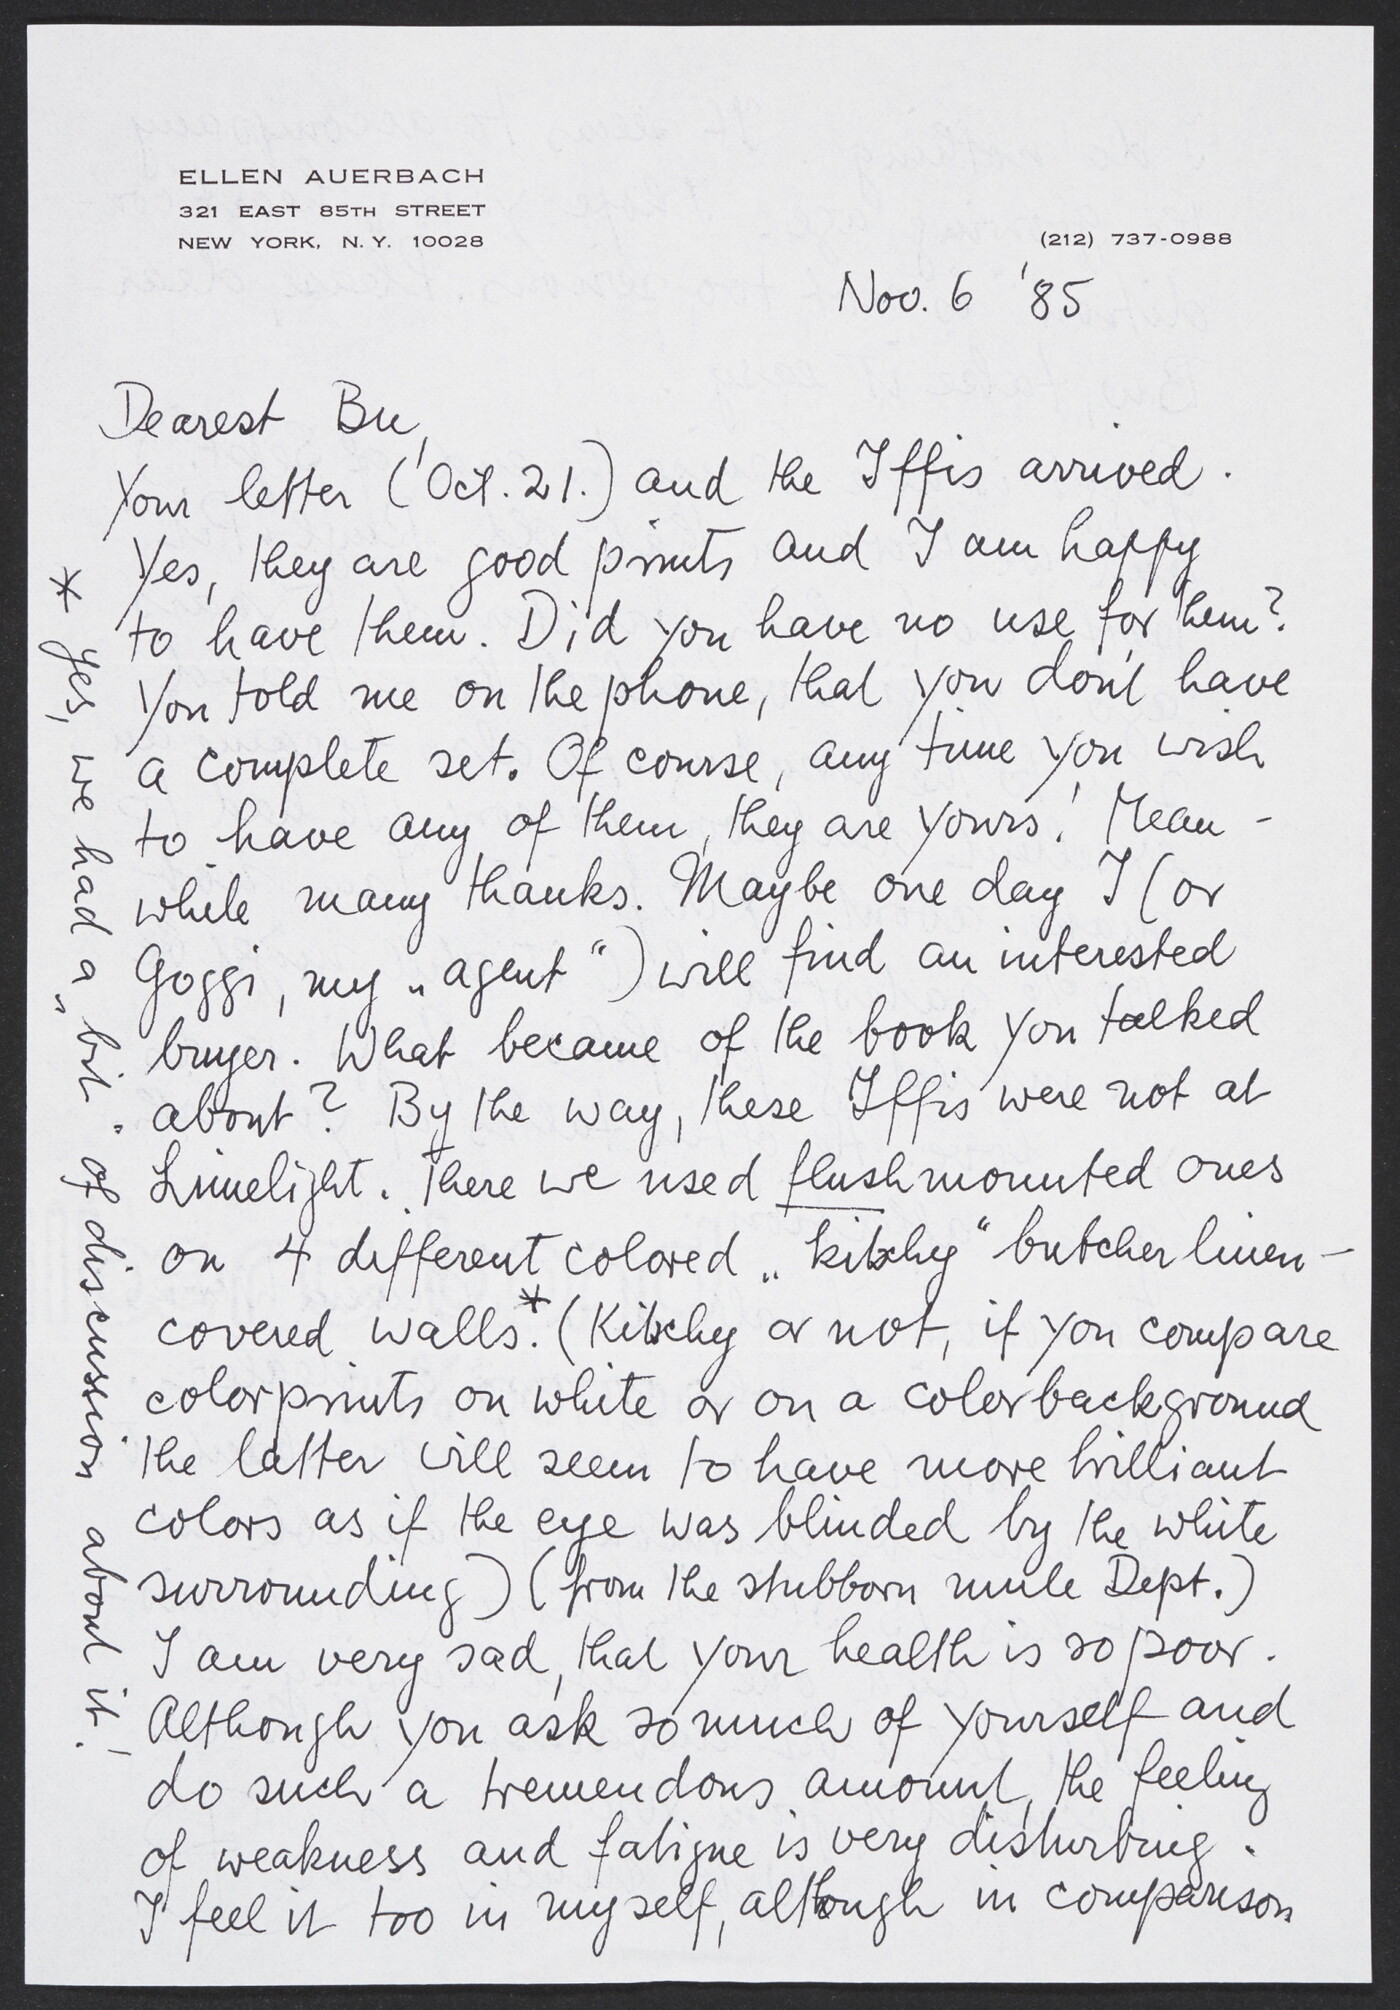 ELLEN AUERBACH
321 EAST 85TH STREET
NEW YORK, N.Y. 10028
(212) 737-0988
Nov. 6 '85
Dearest Bu,
Your letter (Oct. 21.) and the Iffis arrived.
Yes, they are good prints and I am happy
to have them. Did you have no use for them?
You told me on the phone, that you don't have
a complete set. Of course, any time you wish
to have any of them, they are yours! Mean-
while many thanks. Maybe one day I (or
Goggi, my „agent“) will find an interested
buyer. What became of the book you talked
about? By the way, these Iffis were not at
Limelight. There we used flushmounted ones
on 4 different colored „kitschy“ butcher linen-
covered walls.* (Kitschy or not, if you compare
colorprints on white or on a colorbackground
the latter will seem to have more brilliant
colors as if the eye was blinded by the white
surrounding) (from the stubborn mule Dept.)
I am very sad, that your health is so poor.
Although you ask so much of yourself and
do such a tremendous amount, the feeling
of weakness and fatigue is very disturbing.
I feel it too in myself, although in comparison
* Yes, we had a „bit“ of discussion about it!